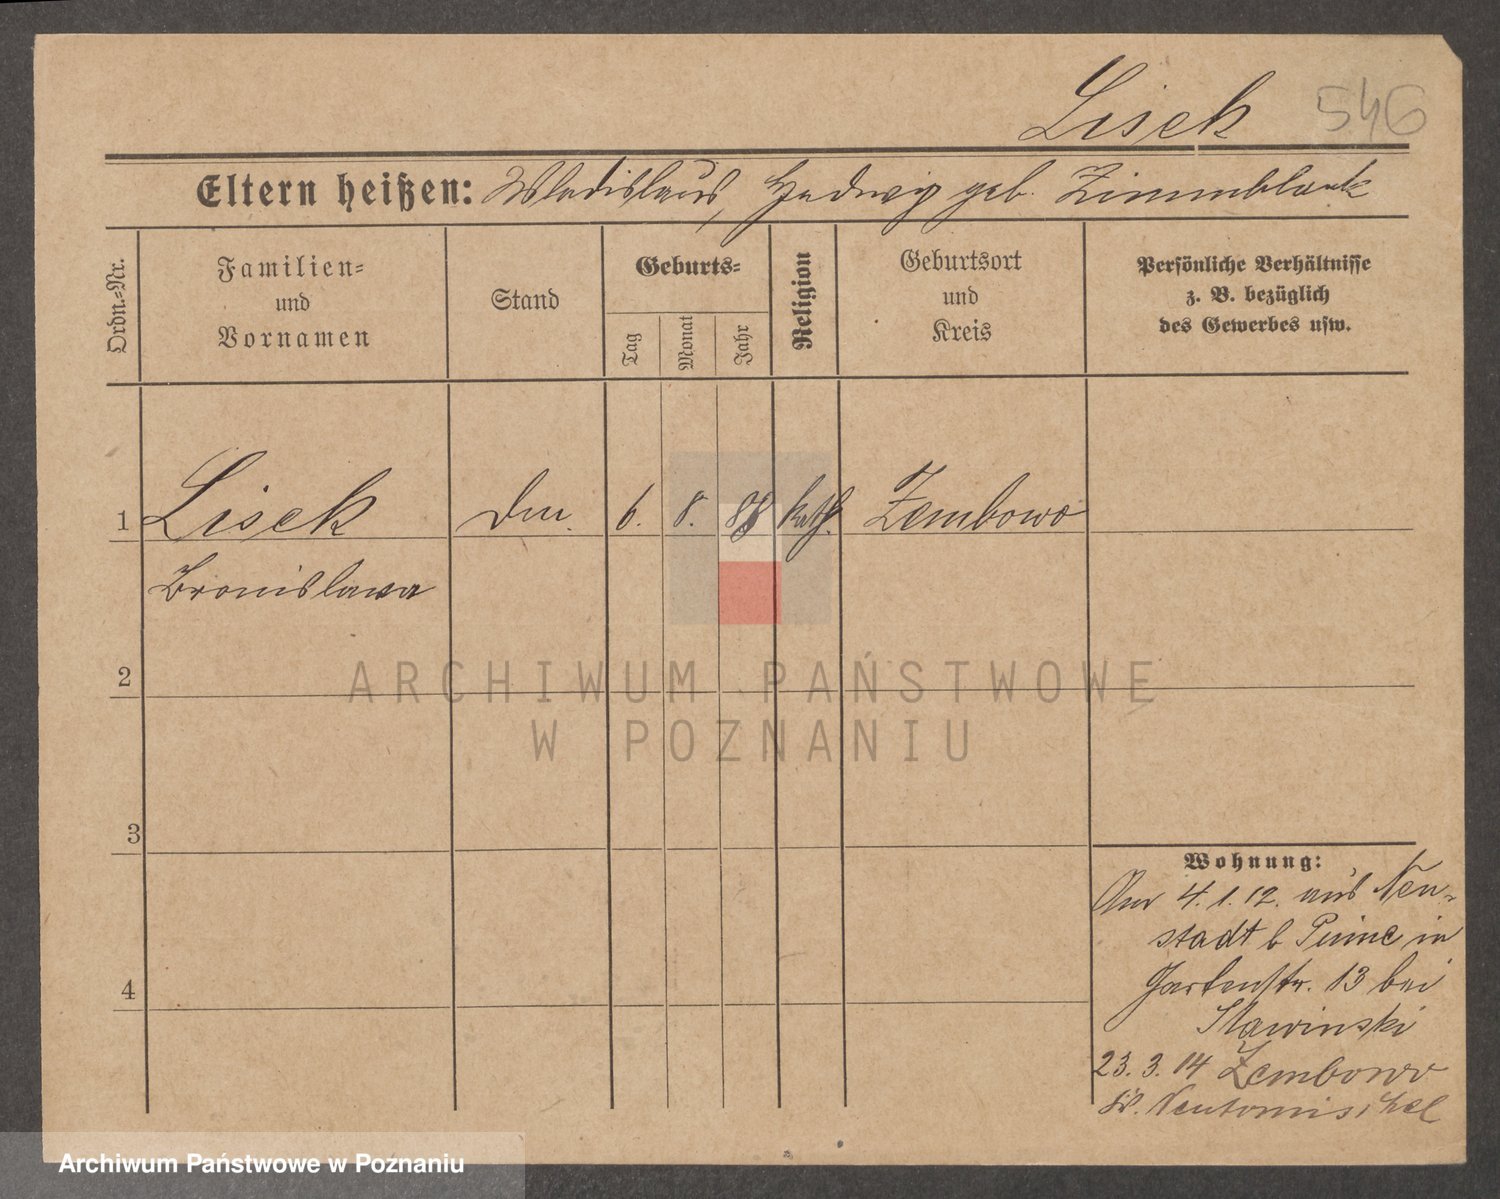 Lisek 546
Eltern heißen: Wladislaus, Hedwig geb. Zimmblank
Ordn.-Nr.
Familien-
und
Vornamen
Stand
Geburts-
Tag
Monat
Jahr
Religion
Geburtsort
und
Kreis
Persönliche Verhältnisse
z. B. bezüglich
des Gewerbes usw.
1 Lisek 6. 8. 88 kath. Zembowo
Bronislawa
2
ARCHIWUM PAŃSTWOWE
W POZNANIU
3
4
Wohnung:
4. 1. 12. aus Neu-
stadt b Pinne in
Gartenstr. 13 bei
Slawinski
23. 3. 14 Zembowo
Kr. Neutomischel
Archiwum Państwowe w Poznaniu